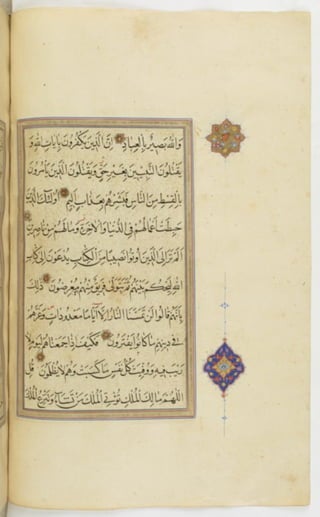 والله بصير بالعباد ان الذين يكفرون بايات الله و
يقتلون النبيين بغير حق ويقتلون الذين يأمرون
بالقسط من الناس فبشرهم بعذاب اليم اولئك الذين
حبطت اعمالهم في الدنيا والاخرة وما لهم من ناصرين
الم تر الى الذين اوتوا نصيبا من الكتاب يدعون الى كتاب
الله ليحكم بينهم ثم يتولى فريق منهم وهم معرضون ذلك
بانهم قالوا لن تمسنا النار الا اياما معدودات وغرهم
في دينهم ما كانوا يفترون فكيف اذا جمعناهم ليوم لا
ريب فيه ووفيت كل نفس ما كسبت وهم لا يظلمون قل
اللهم مالك الملك تؤتي الملك من تشاء وتنزع الملك